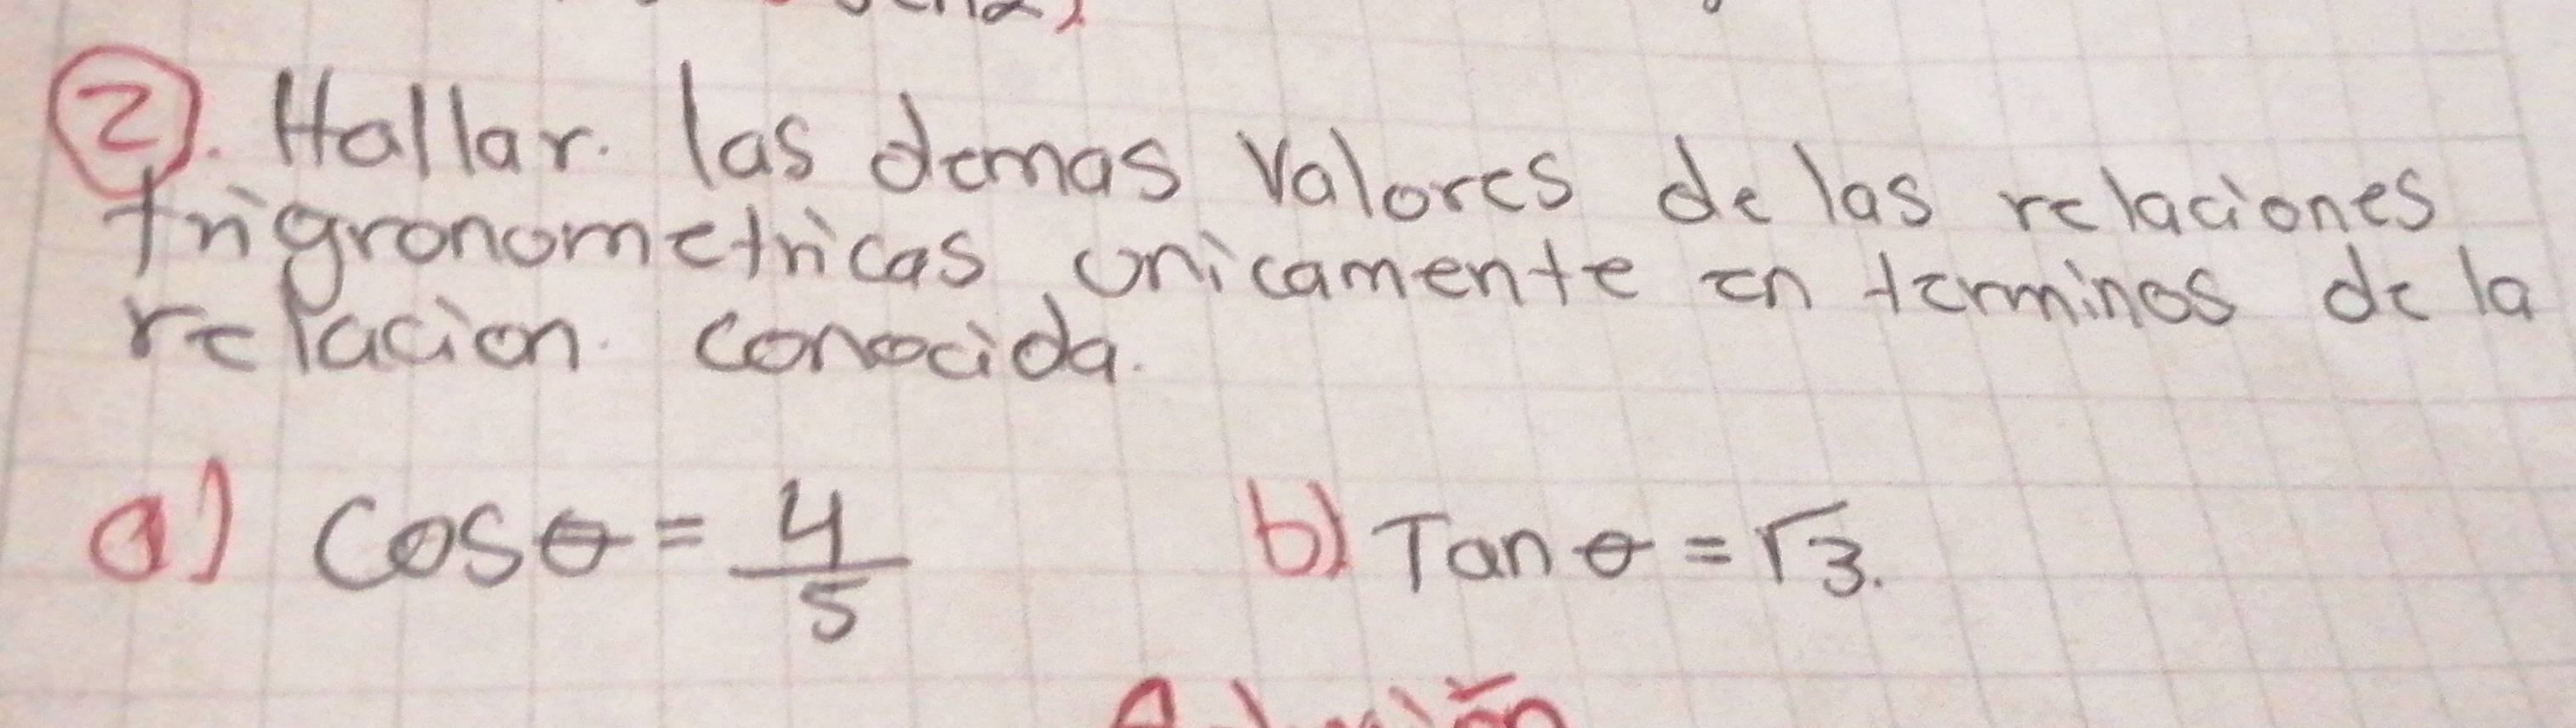 2). Hallar. las demas Valores de las relaciones
trigronometricas, unicamente en terminos de la
relacion. conocida.
a) Cosθ = 4/5 b) Tan θ = √3.